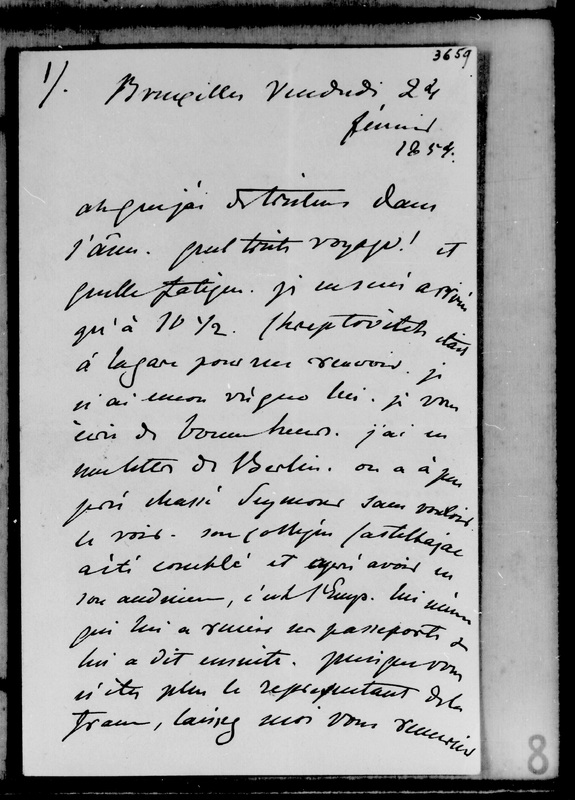 3659
1/.
Bruxelles Vendredi 24
février
1854.
ah que j'ai de tristesse dans
l'âme. quel triste voyage! et
quelle fatigue. je ne suis arrivée
qu'à 10 1/2. Chreptovitch était
à la gare pour me recevoir. je
n'ai encore vu que lui. je vous
écris de bonne heure. j'ai eu
une lettre de Berlin. on a à peu
près chassé Seymour sans vouloir
le voir. son collègue Castelbajac
a été comblé et après avoir eu
son audience, c'est l'Emp. lui même
qui lui a remis ses passeports &
lui a dit ensuite. puisque vous
n'êtes plus le représentant de la
france, laissez moi vous remercier
8